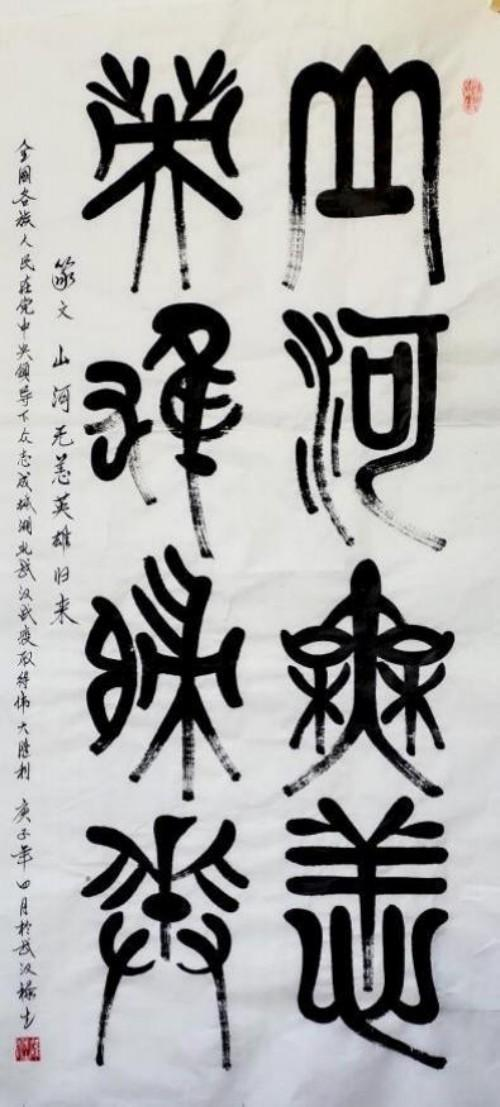 山河無恙
英雄歸来
篆文 山河无恙英雄归来
全国各族人民在党中央领导下众志成城湖北武汉战疫取得伟大胜利 庚子年四月於武汉